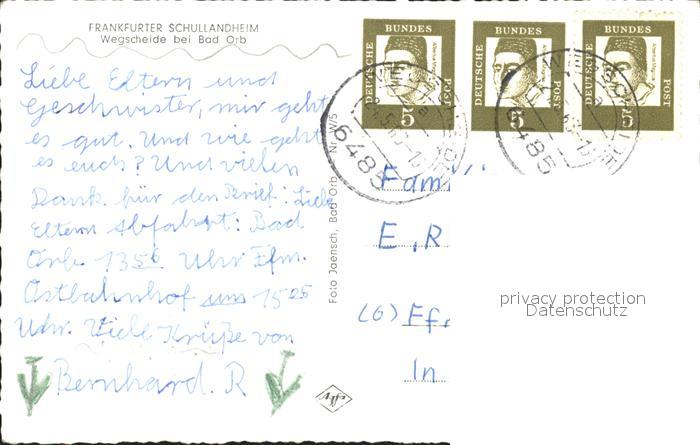 FRANKFURTER SCHULLANDHEIM
Wegscheide bei Bad Orb
Liebe Eltern und
Geschwister, mir geht
es gut. Und wie geht
es euch? Und vielen
Dank für den Brief: Liebe
Eltern Abfahrt: Bad
Orb 13 56 Uhr Ffm.
Ostbahnhof um 15 05
Uhr. Viele Krüße von
Bernhard. R
Foto Jaensch, Bad Orb Nr. W/5
DEUTSCHE BUNDES POST
5
DEUTSCHE BUNDES POST
5
DEUTSCHE BUNDES POST
5
6485
6485
Fami
E, R
(6) Ff
In
privacy protection
Datenschutz